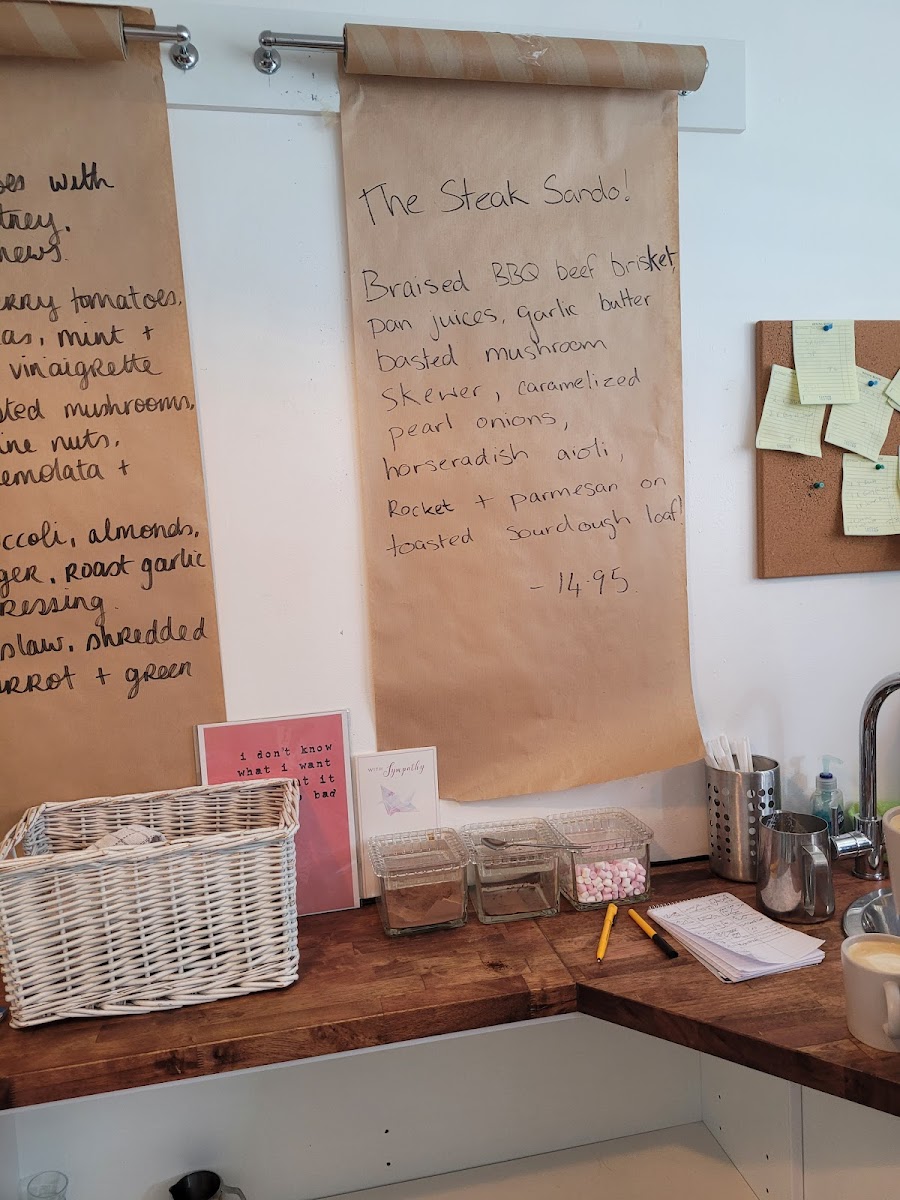 with
tney.
news.
erry tomatoes,
mint +
vinaigrette
sted mushrooms,
ine nuts,
emolata +
ccoli, almonds,
ger, roast garlic
ressing.
slaw, shredded
arrot + green
The Steak Sando!
Braised BBQ beef brisket,
pan juices, garlic butter
basted mushroom
skewer, caramelized
pearl onions,
horseradish aioli,
Rocket + parmesan on
toasted sourdough loaf!
- 14.95.
i don't know
what i want
it
bad
WITH Sympathy